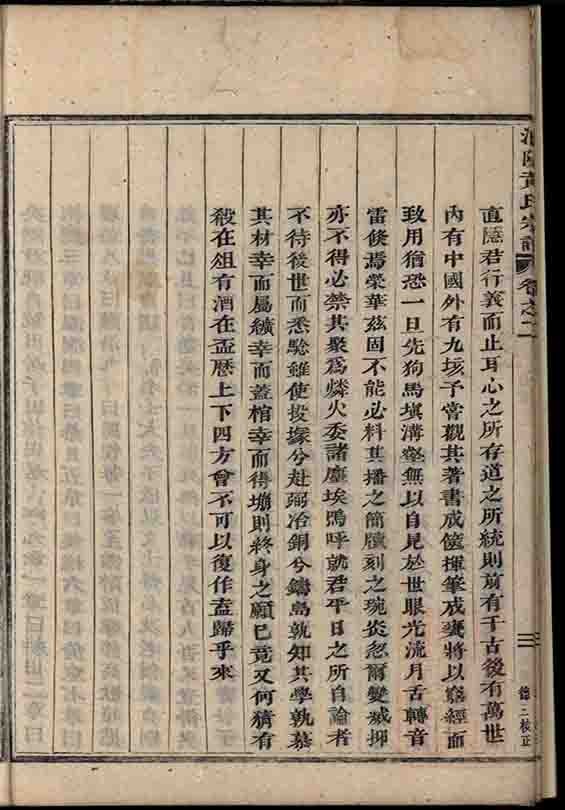 直隱君行義而止耳心之所存道之所統則前有千古後有萬世
內有中國外有九垓予嘗觀其著書成篋揮筆成甕將以窮經而
致用猶恐一旦先狗馬塡溝壑無以自見於世眼光流月舌轉音
雷倏焉榮華茲固不能必料其播之簡牘刻之琬炎忽爾變滅抑
亦不得必禁其聚爲燐火委諸塵埃嗚呼就君平日之所自論者
不待後世而悉驗雖使投㯼兮赴弼冶銅兮鑄島孰知其學孰慕
其材幸而屬纊幸而蓋棺幸而得塴則終身之願已竟又何猜有
殽在俎有酒在盃歷上下四方曾不可以復作盍歸乎來
黃氏宗譜
卷之二
三
德三校正